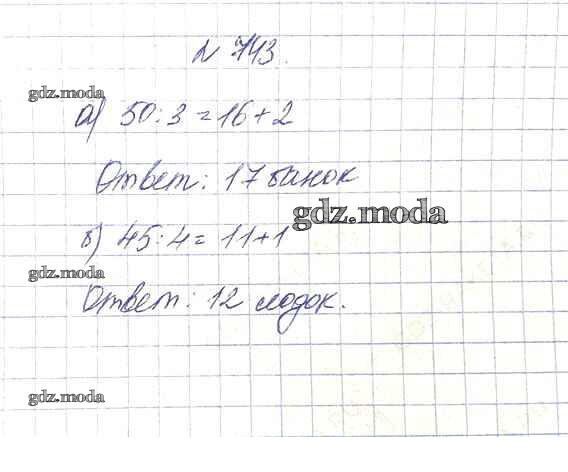 N 743.
gdz.moda
а) 50:3=16+2
Ответ: 17 банок
gdz.moda
б) 45:4= 11+1
gdz.moda
Ответ: 12 лодок.
gdz.moda